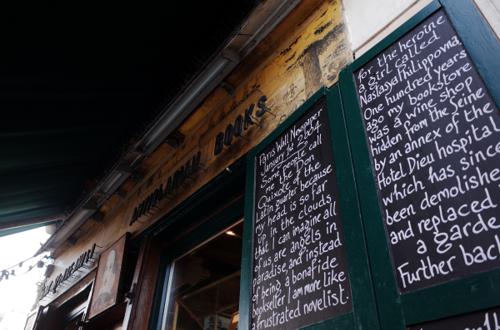 ANTIQUARIAN BOOKS
Paris Wall Newspaper
January 1st 2004
Some people call
me the Don
Quixote of the
Latin Quarter because
my head is so far
up in the clouds
that I can imagine all
of us are angels in
paradise and instead
of being a bonafide
bookseller I am more like
a frustrated novelist.
for the heroine
a girl called
Nastasya Philippovna,
hundred years
ago my bookstore
was a wine shop
hidden from the Seine
by an annex of the
Hotel Dieu hospital
which has since
been demolished
and replaced
a garde
Further back